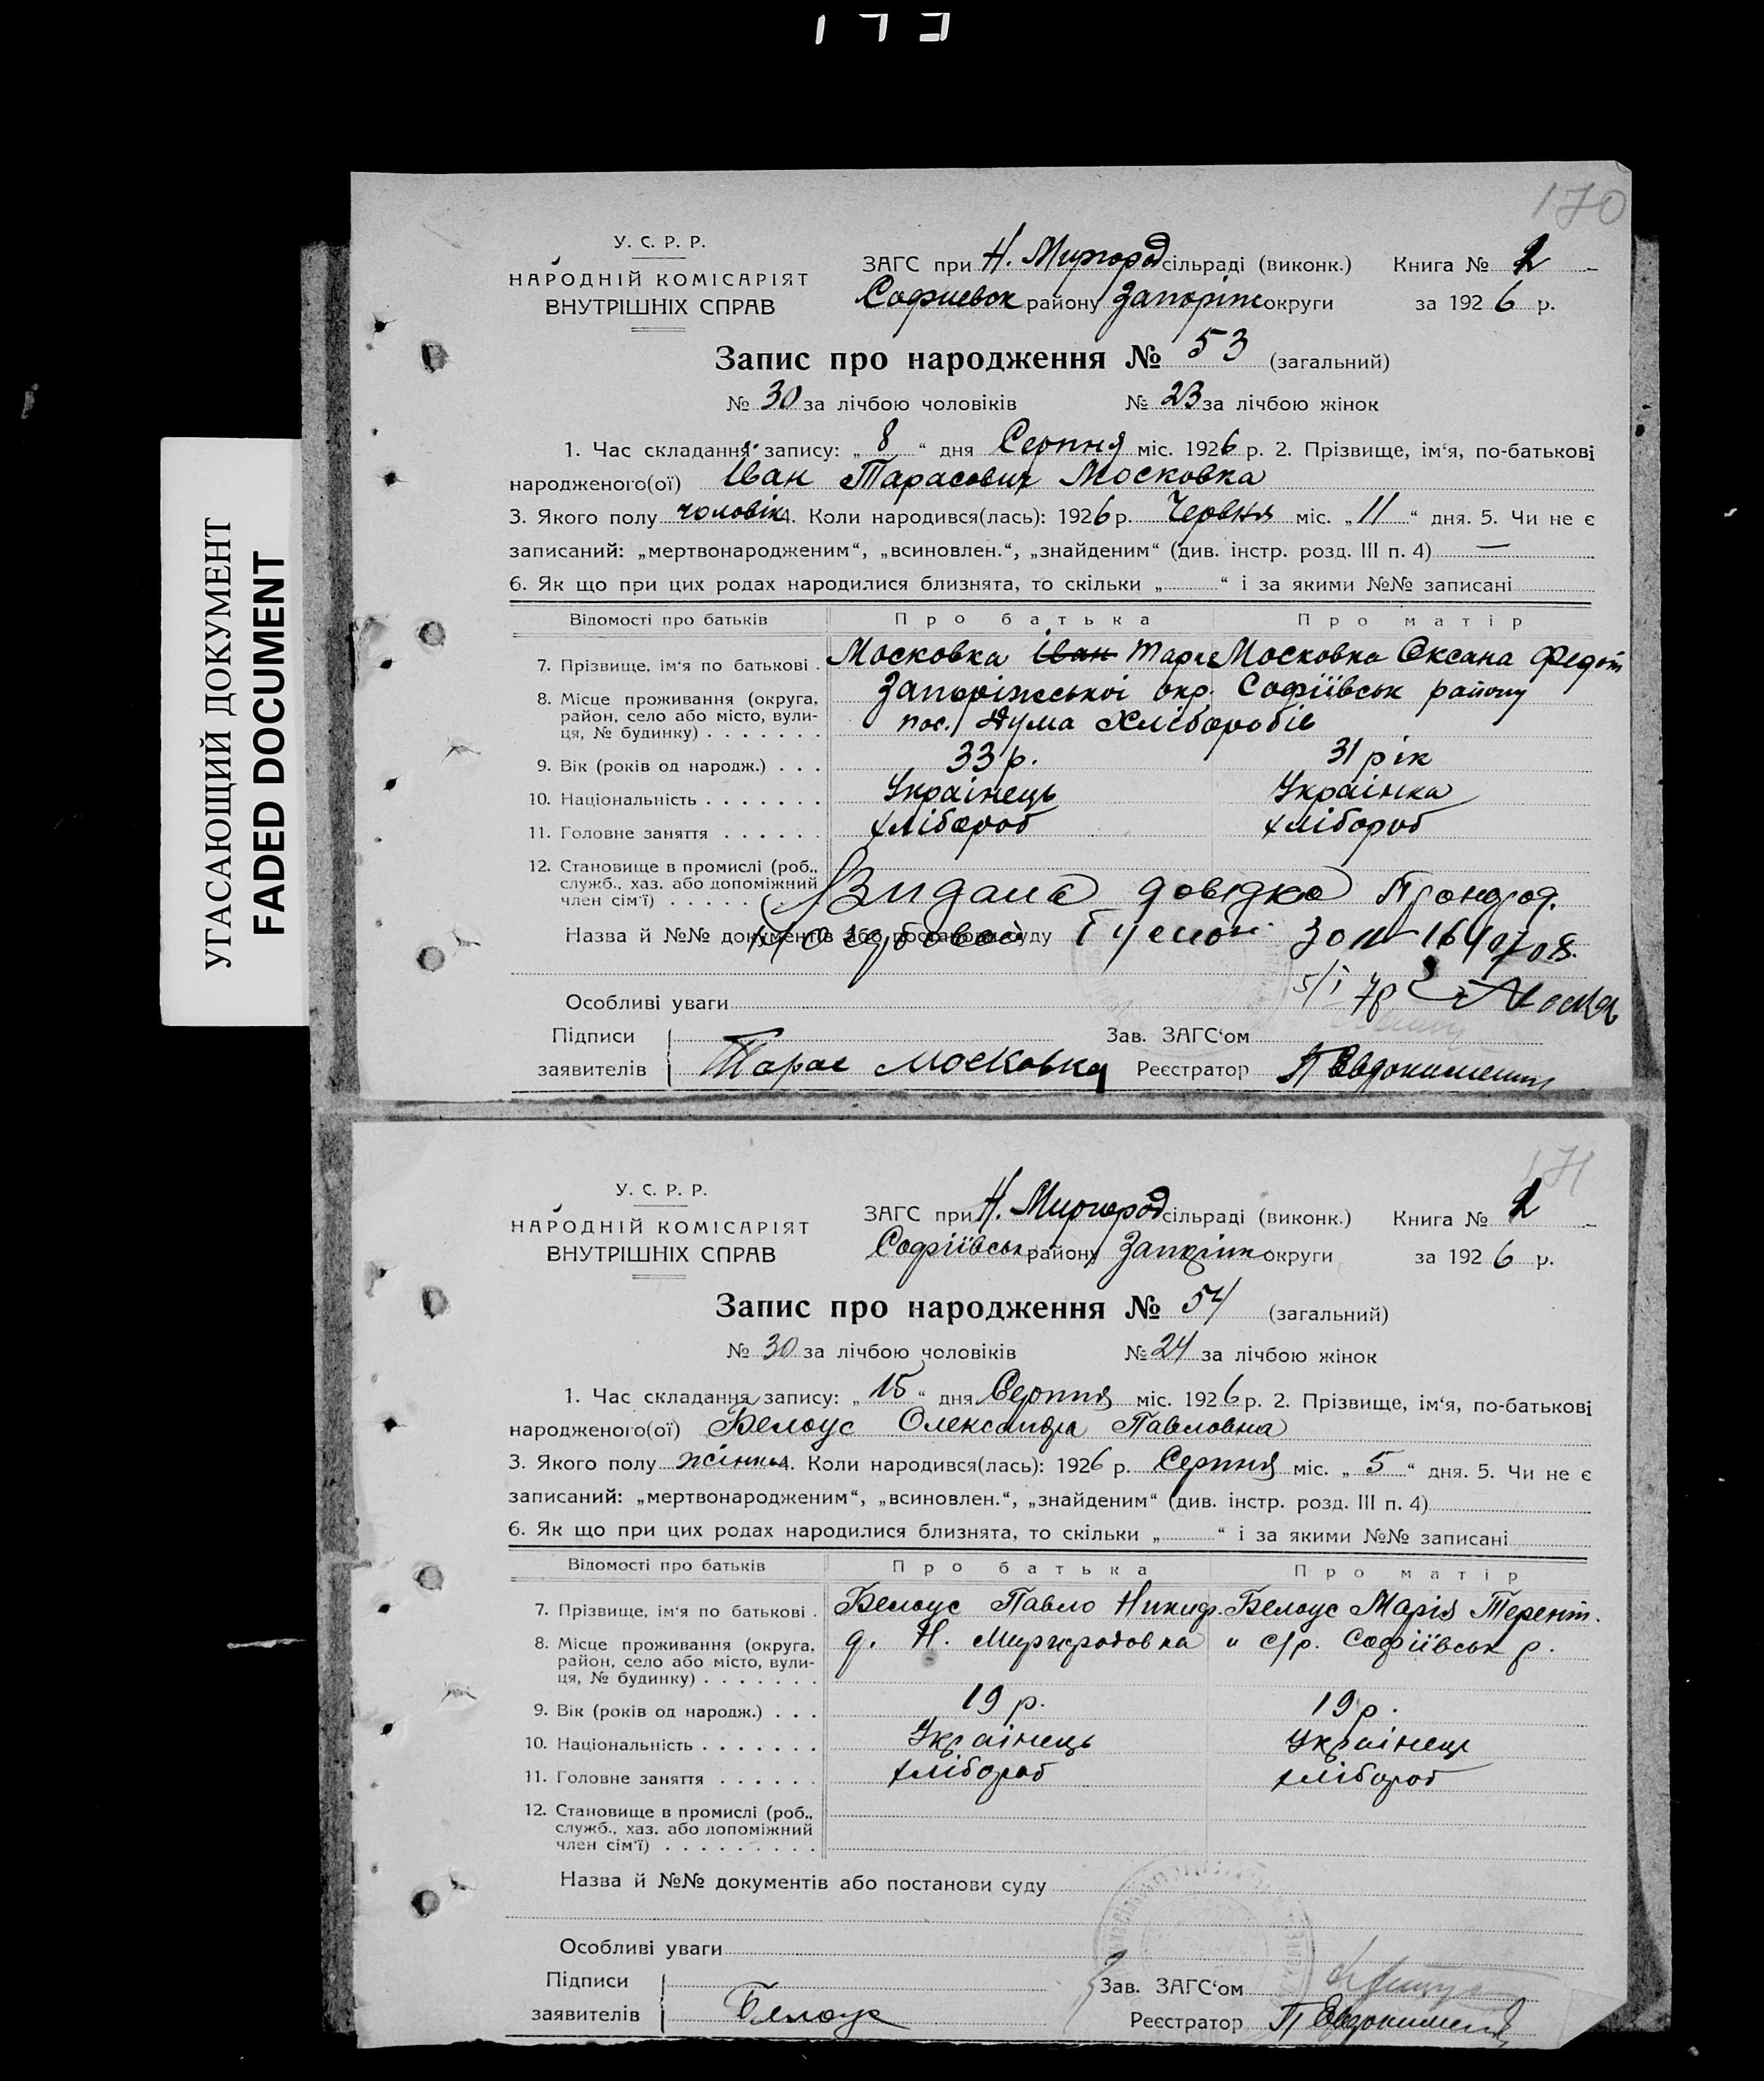 173
170
УГАСАЮЩИЙ ДОКУМЕНТ
FADED DOCUMENT
У. С. Р. Р.
НАРОДНІЙ КОМІСАРІЯТ
ВНУТРІШНІХ СПРАВ
ЗАГС при Н. Миргород сільраді (виконк.) Книга № 2
Софиевск району Запоріж округи за 1926 р.
Запис про народження № 53 (загальний)
№ 30 за лічбою чоловіків № 23 за лічбою жінок
1. Час складання запису: „ 8 “ дня Серпня міс. 1926 р. 2. Прізвище, ім‘я, по-батькові
народженого(ої) Іван Тарасович Московка
3. Якого полу чоловік 4. Коли народився(лась): 1926 р. Червня міс. „ 11 “ дня. 5. Чи не є
записаний: „мертвонародженим“, „всиновлен.“, „знайденим“ (див. інстр. розд. III п. 4) —
6. Як що при цих родах народилися близнята, то скільки „ “ і за якими №№ записані
Відомості про батьків Про батька Про матір
7. Прізвище, ім‘я по батькові . Московка Іван Тарас Московка Оксана Федот
8. Місце проживання (округа, Запоріжськоі окр. Софіївськ району
район, село або місто, вули- пос. Дума Хліборобів
ця, № будинку) . . . . . . .
9. Вік (років од народж.) . . . 33 р. 31 рік
10. Національність . . . . . . . Украінець Украінка
11. Головне заняття . . . . . . хлібороб хлібороб
12. Становище в промислі (роб.,
служб., хаз. або допоміжний Видана довідка
член сім‘ї) . . . . .
Назва й №№ документів або постанови суду
Особливі уваги
Підписи Зав. ЗАГС‘ом
заявителів Тарас Московка Реєстратор П Евдокименко
171
У. С. Р. Р.
НАРОДНІЙ КОМІСАРІЯТ
ВНУТРІШНІХ СПРАВ
ЗАГС при Н. Миргород сільраді (виконк.) Книга № 2
Софіївськ району Запоріж округи за 1926 р.
Запис про народження № 54 (загальний)
№ 30 за лічбою чоловіків № 24 за лічбою жінок
1. Час складання запису: „ 15 “ дня Серпня міс. 1926 р. 2. Прізвище, ім‘я, по-батькові
народженого(ої) Белоус Олександра Павловна
3. Якого полу жінка 4. Коли народився(лась): 1926 р. Серпня міс. „ 5 “ дня. 5. Чи не є
записаний: „мертвонародженим“, „всиновлен.“, „знайденим“ (див. інстр. розд. III п. 4)
6. Як що при цих родах народилися близнята, то скільки „ “ і за якими №№ записані
Відомості про батьків Про батька Про матір
7. Прізвище, ім‘я по батькові . Белоус Павло Никиф. Белоус Марія Терент.
8. Місце проживання (округа, д. Н. Миргородовка " с/р. Софіївськ р.
район, село або місто, вули-
ця, № будинку) . . . . . . .
9. Вік (років од народж.) . . . 19 р. 19 р.
10. Національність . . . . . . . Украінець Украінець
11. Головне заняття . . . . . . хлібороб хлібороб
12. Становище в промислі (роб.,
служб., хаз. або допоміжний
член сім‘ї) . . . . . . . . .
Назва й №№ документів або постанови суду
Особливі уваги
Підписи Зав. ЗАГС‘ом
заявителів Белоус Реєстратор П Евдокименко